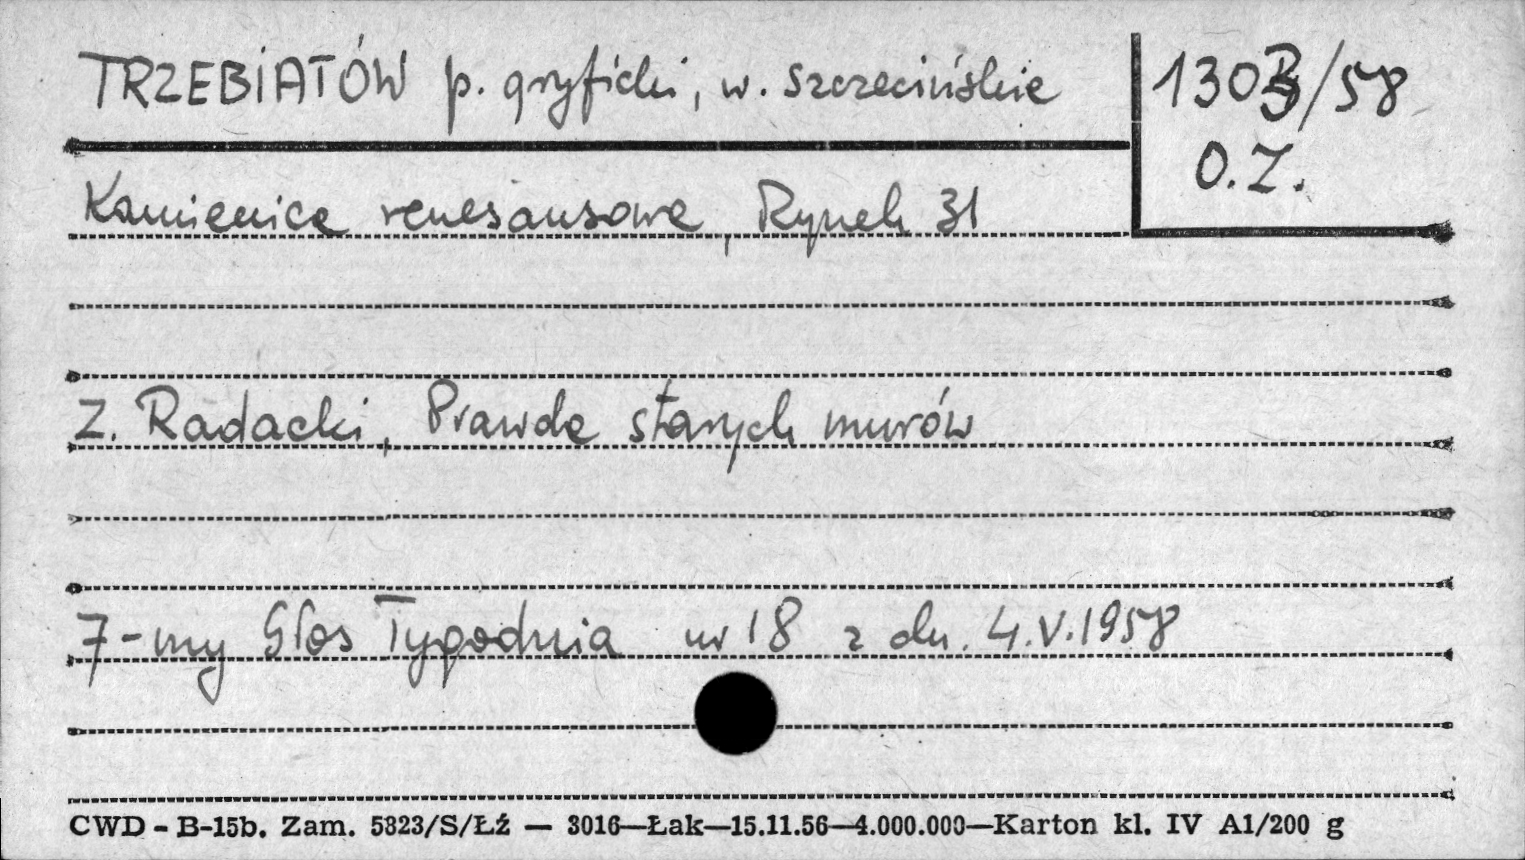 TRZEBIATÓW p. gryficki, w. szczecińskie
1303/58
O.Z.
Kamienica renesansowa, Rynek 31
Z. Radacki, Prawda starych murów
7-my Głos Tygodnia nr 18 z dn. 4.V.1958
CWD - B-15b. Zam. 5823/S/Łź — 3016—Łak—15.11.56—4.000.000—Karton kl. IV A1/200 g